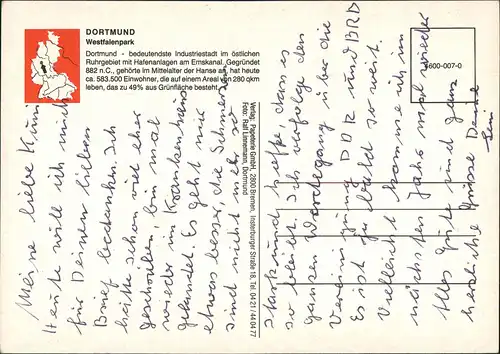 DORTMUND
Westfalenpark
Dortmund - bedeutendste Industriestadt im östlichen
Ruhrgebiet mit Hafenanlagen am Emskanal. Gegründet
882 n.C., gehörte im Mittelalter der Hanse an, hat heute
ca. 583.500 Einwohner, die auf einem Areal von 280 qkm
leben, das zu 49% aus Grünfläche besteht.
6600-007-0
Verlag: Papeterie GmbH, 2800 Bremen, Insterburger Straße 18, Tel. 04 21 / 44 04 77
Foto: Ralf Linnemann, Dortmund
Meine liebe
Heute will ich mich
für Deinen lieben
Brief bedanken. Ich
hätte schon viel eher
geschrieben, bin mal
wieder im Krankenhaus
gelandet. Es geht mir
etwas besser, die Schmerzen
sind nicht mehr so
stark und hoffe, dass es
so bleibt. Ich verfolge den
ganzen Werdegang über die
Vereinigung DDR und BRD
Es ist ja bald so weit.
Vielleicht komme ich im
nächsten Jahr mal wieder
Alles Gute und ganz
herzliche Grüsse Deine